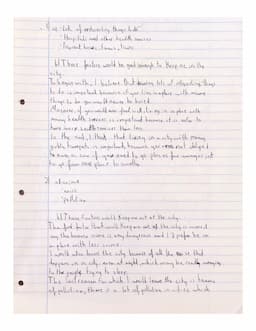 1) a) - lots of interesting things to do
- Hospitals and other health services
- Transport buses, trams, trains
b) These factors would be good enough to keep me in the city.
To begin with, I believe that having lots of interesting things
to do is important because if you live in a place with more
things to do you will never be bored.
Moreover, if you will ever feel sick, living in a place with
many health services is important because it is safer to
have more health services than less.
In the end, I think that living in a city with many
public transports is important because you are not obliged
to own a car if you need to go places far away
go from one place to another.
2)
- noise
- pollution
b) These factors would keep me out of the city.
The first factor that would keep me out of the city is
because crime is very dangerous and I'd prefer to be in
a place with less crime.
I would also leave the city because of all the noise that
happens in a city, even at night which may be really annoying
to the people trying to sleep.
The last reason for which I would leave the city is because
of pollution, there is a lot of pollution in cities which